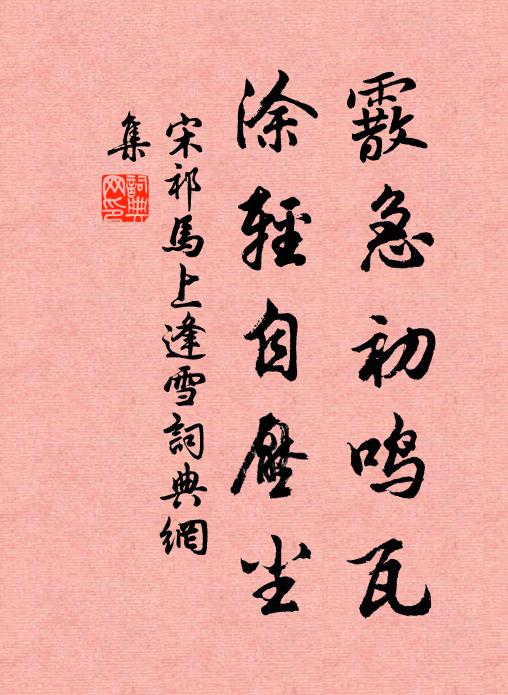 霰急初鸣瓦
涂轻自压尘
宋祁馬上逢雪詞典網
集
詞典
网印